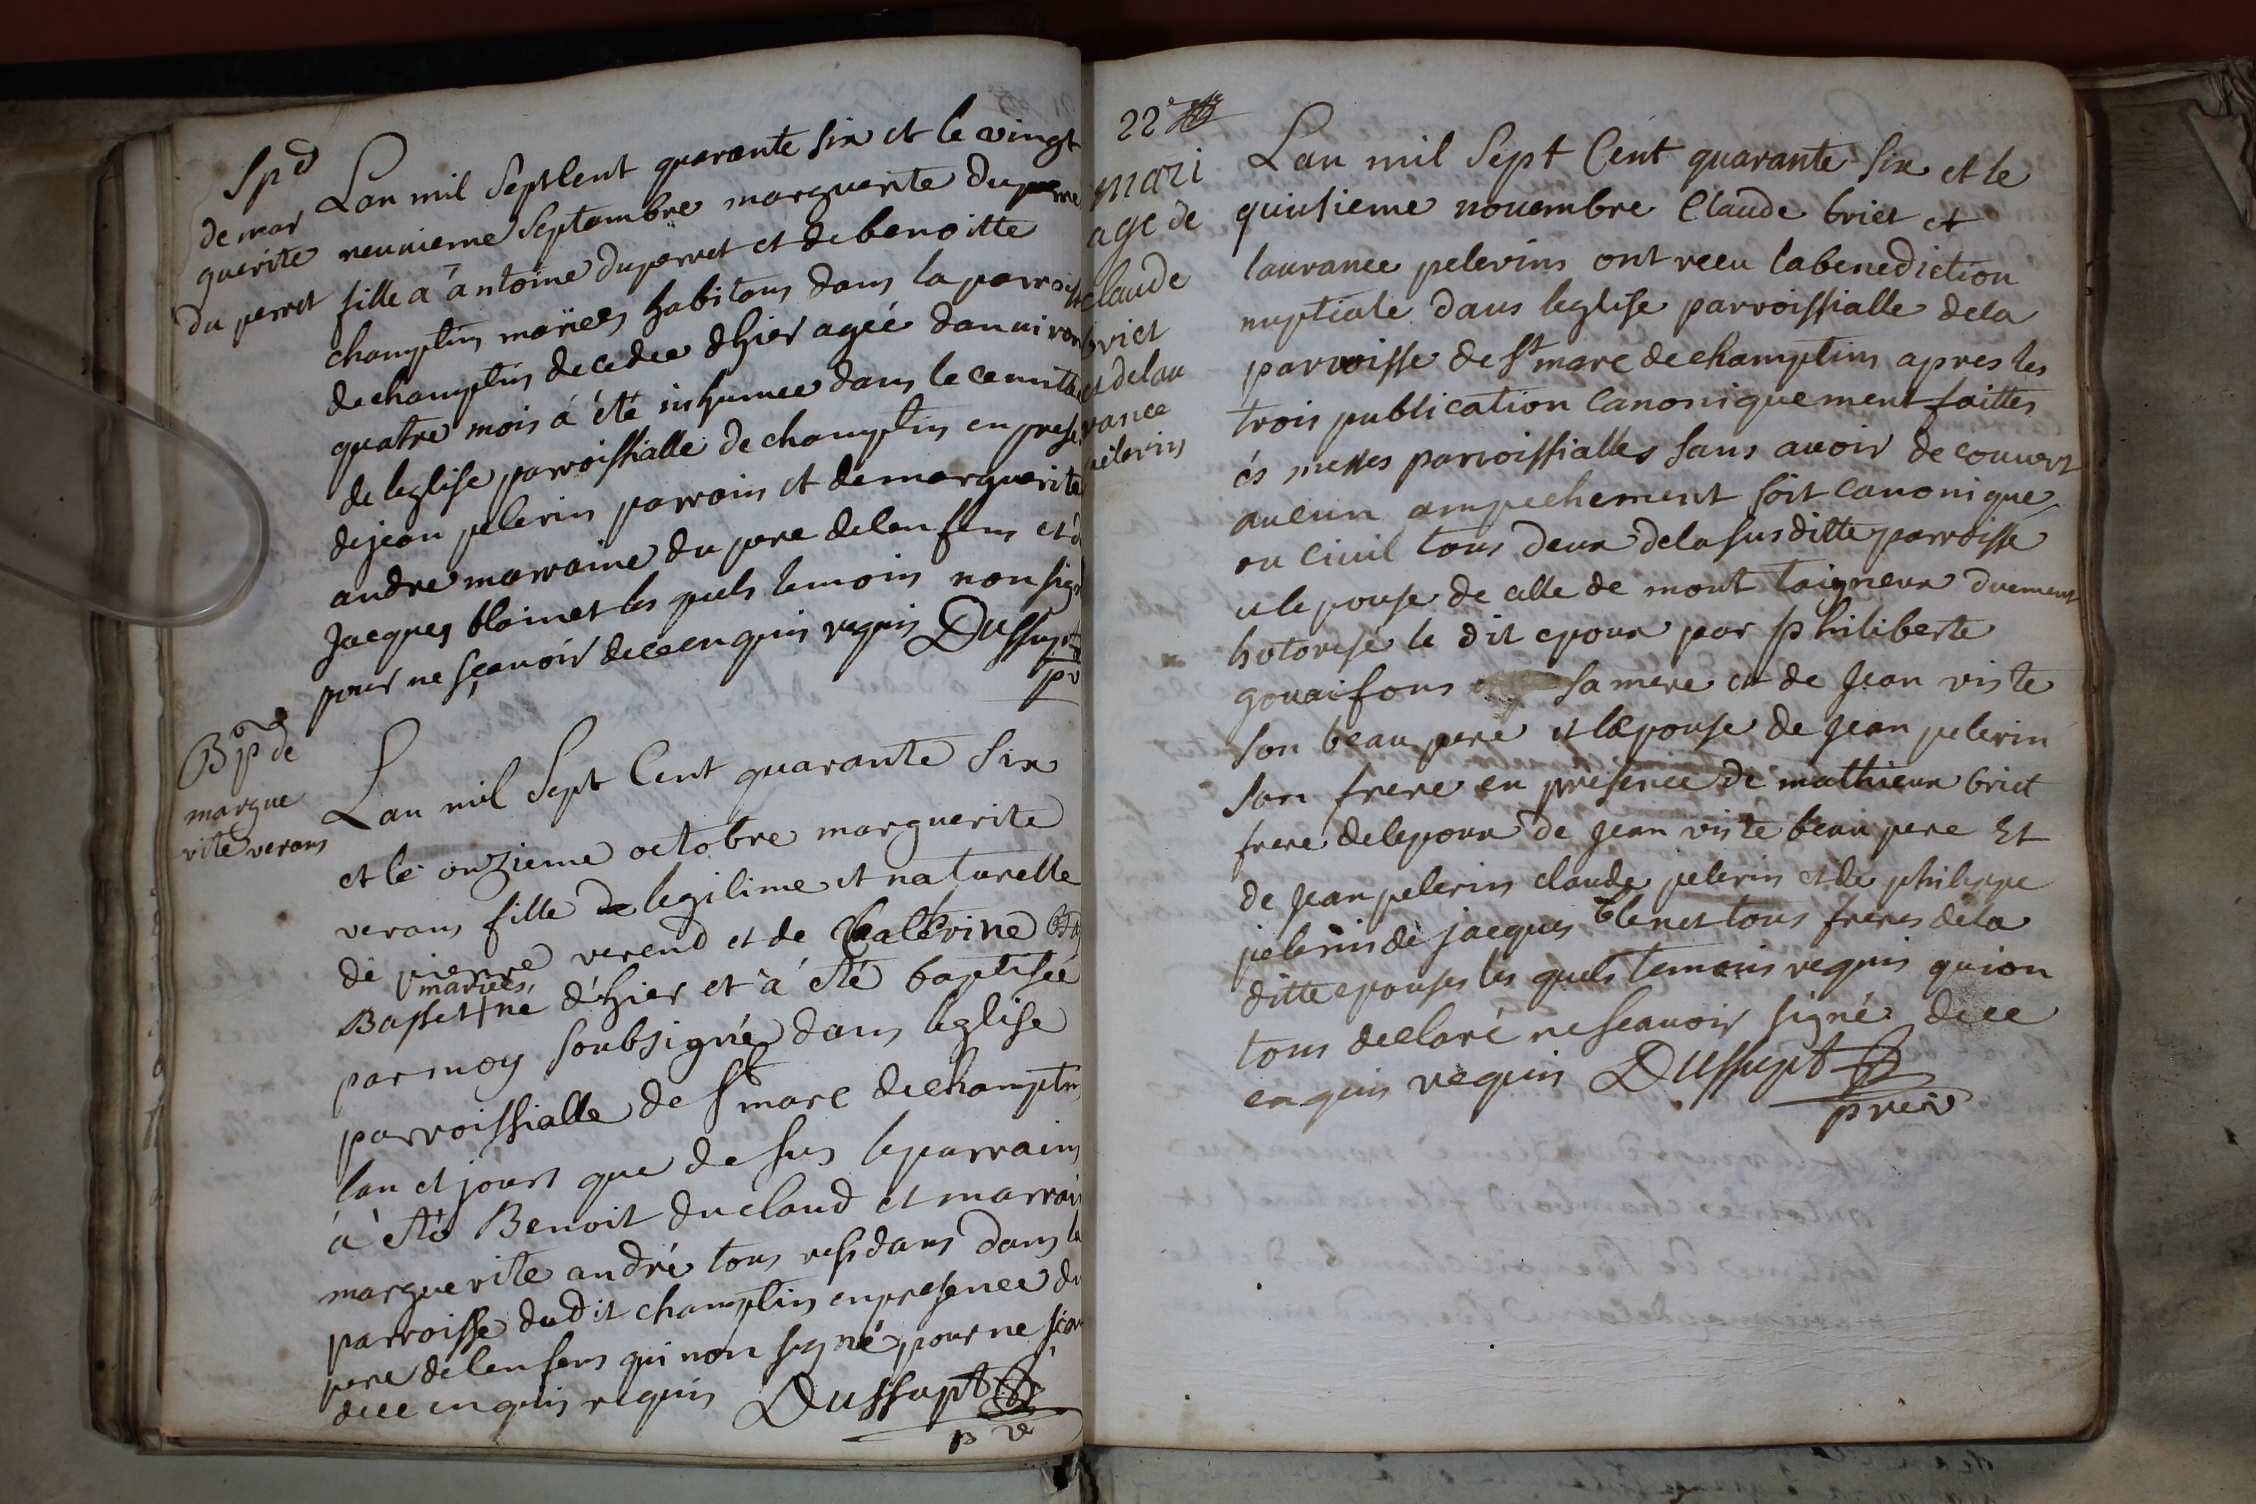 Spd
de mar
guerite
du perret
Lan mil Sept Cent quarante six et le vingt
neuvieme Septambre marguerite duperre
fille a antoine duperret et de benoitte
champtin mariees habitans dans la parroisse
de champtin decedee dhier agée danviron
quatre mois á été inhumee dans le cemitie
de leglise parroissialle de champtin en prese
de jean pelerin parrain et de marguerite
andre marraine du pere de lenfens et d
Jacques blainet les quels temoin non sign
pour ne sçavoir de ce enquis requis Dussupt
pr
Bp de
margue
rite verans
Lan mil Sept Cent quarante six
et le onzieme octobre marguerite
verans fille de legitime et naturelle
de pierre verend et de Catérine
mariées
Basset + né d'hier et à été baptisée
par moy soubsigné dans leglise
parroissialle de St marc de champtin
lan et jours que desus le parrain
á été Benoit duclaud et marrai
marguerite andré tous residans dans la
parroisse dudit champtin en presence du
pere de lenfens qui non signé pour ne scav
de ce enquis requis Dussupt
p r
22e
mari
age de
claude
briet
et delau
rance
pelerin
Lan mil Sept Cent quarante six et le
quinsieme novembre Claude briet et
laurance pelerins ont receu la benediction
nuptiale dans leglise parroissialle dela
parroisse de St marc de champtin apres les
trois publication Canoniquement faittes
és messes parroissialles sans avoir decouvert
aucun ampechement soit Canonique
ou Civil tous deux dela susditte parroisse
et le pouse de celle de mont duement
hotorisé le dit epoux par philiberte
gouaifons sa mere et de Jean viste
son beau pere et lepouse de Jean pelerin
son frere en presence de mathieux briet
frere delepoux de Jean viste beau pere Et
de Jean pelerin claude pelerin et de philippe
pelerin de jacques blenet tous freres dela
ditte epouses les quels temoins requis qui on
tous declaré ne scavoir signé de ce
enquis requis Dussupt
prier